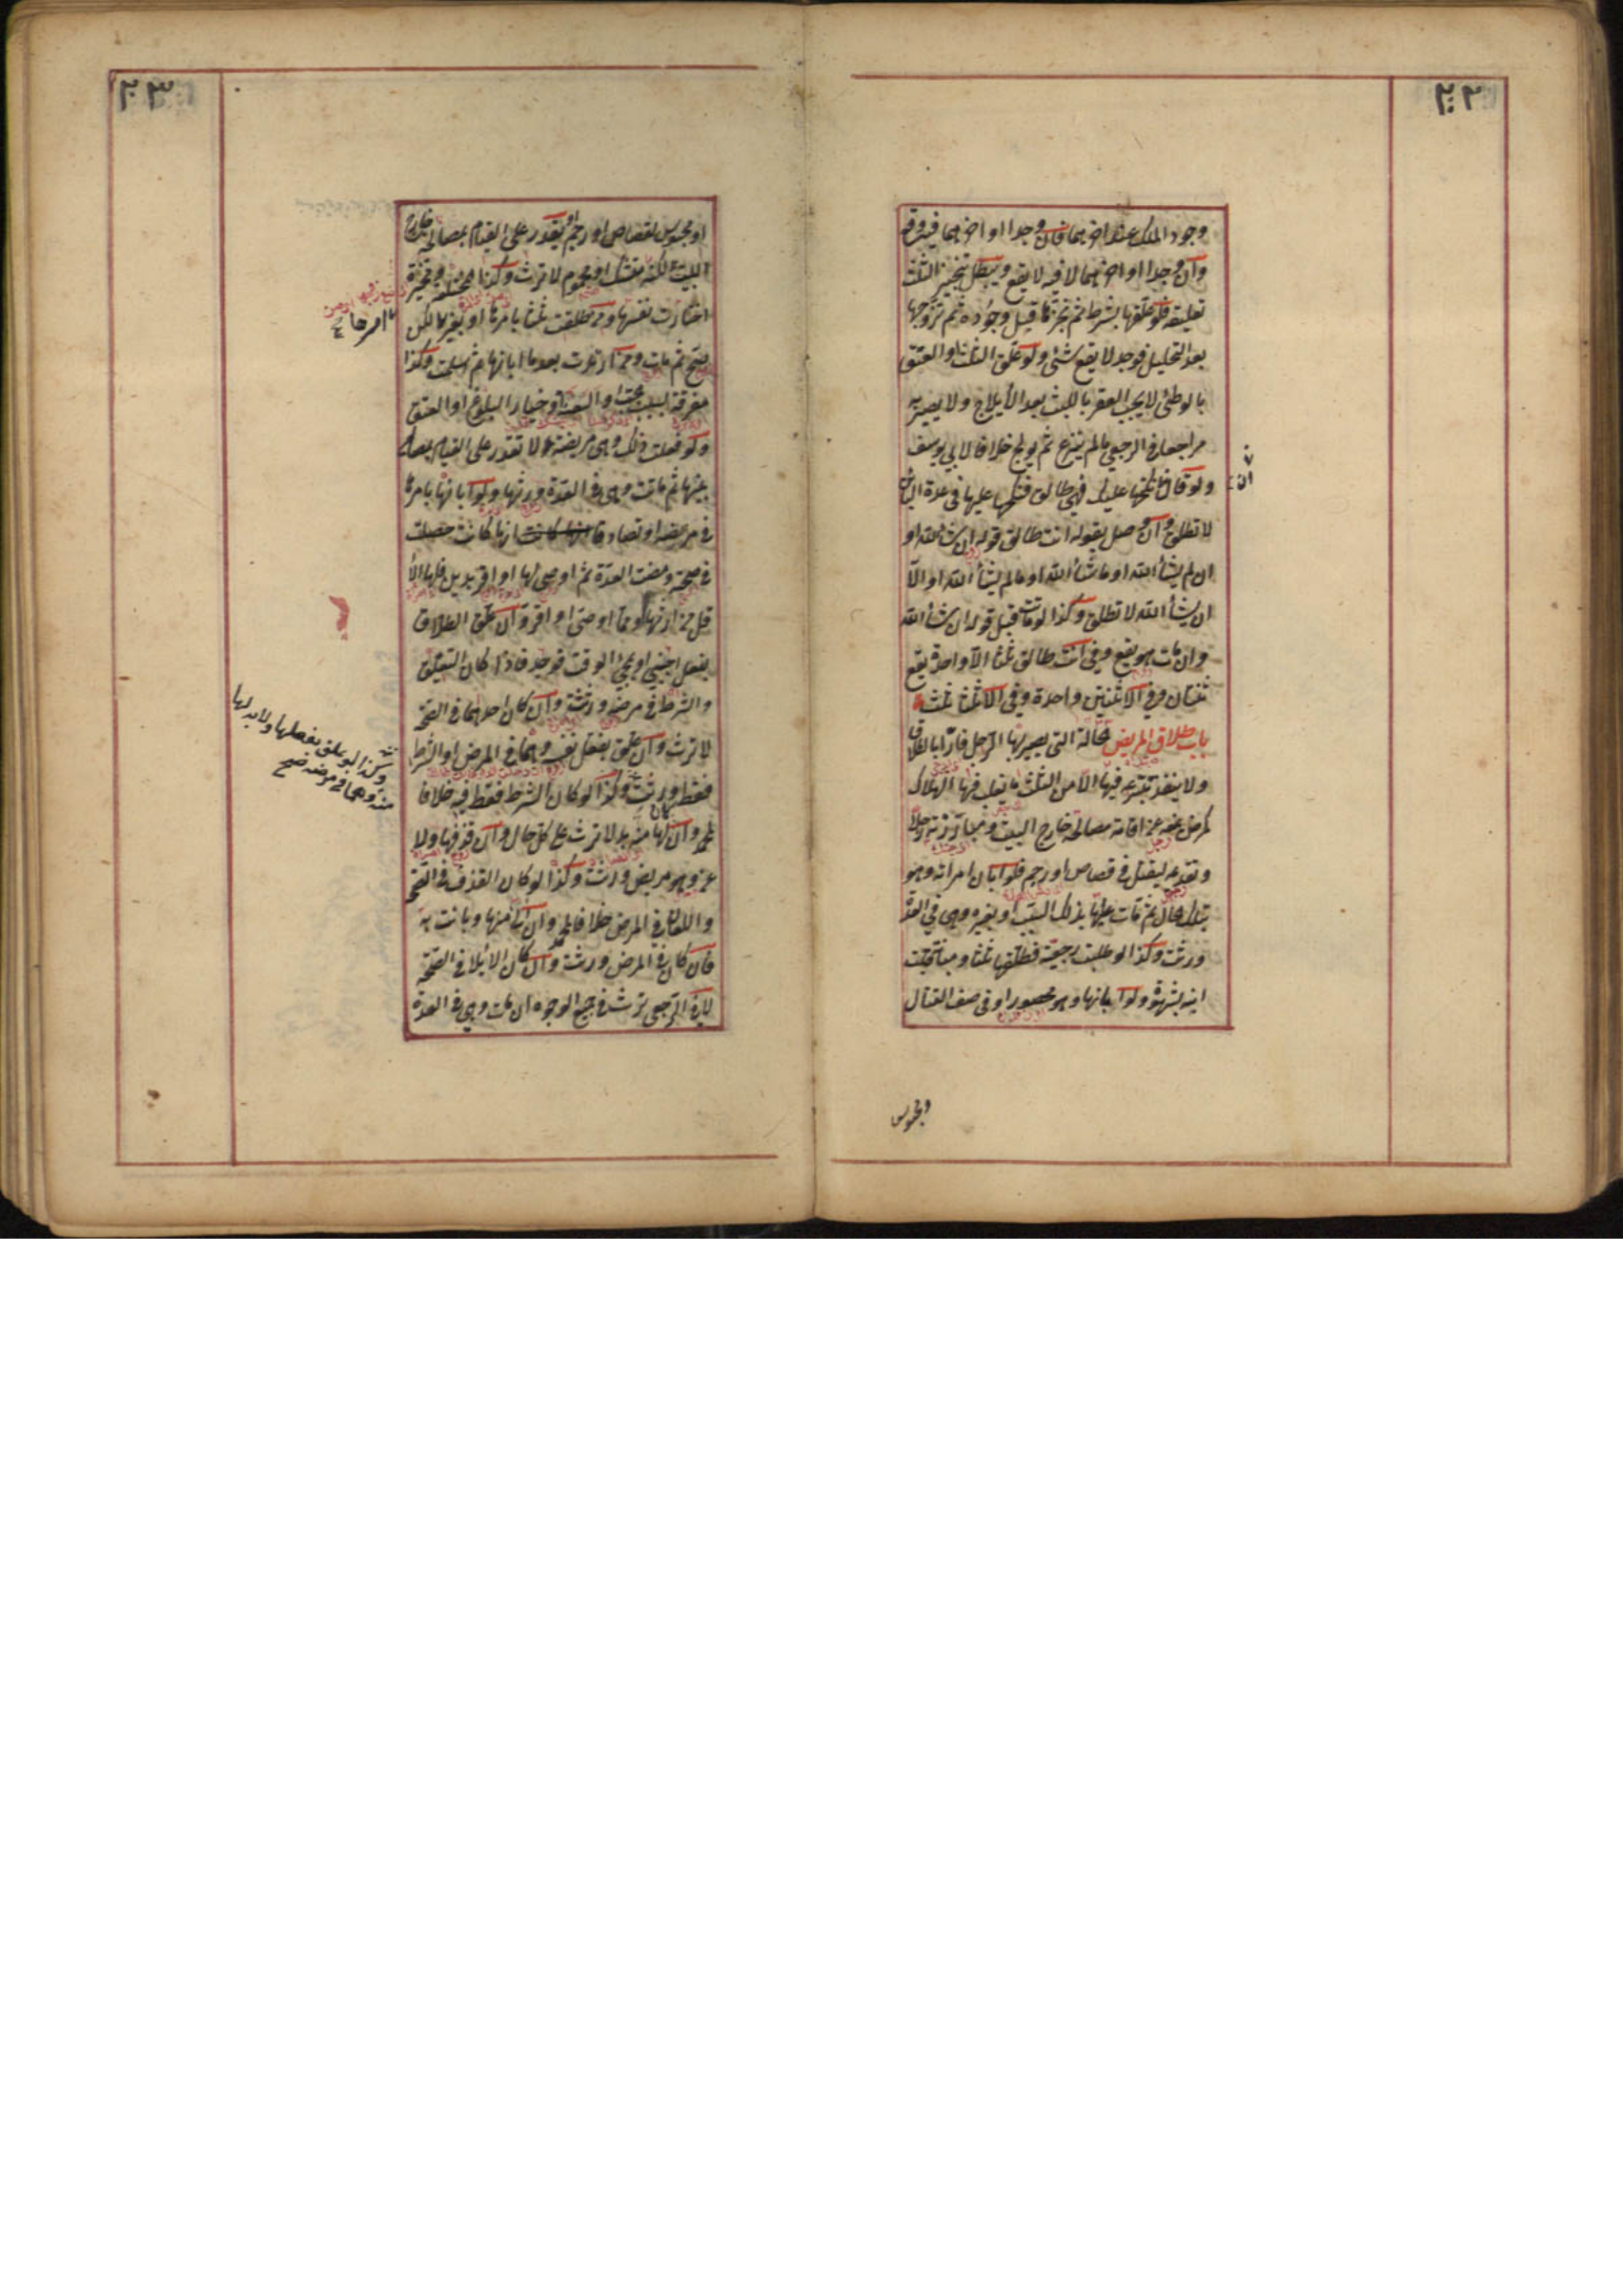 ٢٠٢
وجود الملك عند اخرهما فان وجدا او اخرهما فيه وقع
وان وجدا او اخرهما لا فيه لا يقع ويبطل تنجيز الثلث
تعليقه فلو علقها بشرط ثم نجزها قبل وجوده ثم تزوجها
بعد التحليل فوجد لا يقع شئ ولو علق الثلث او العتق
بالوطئ لا يجب العقر باللبث بعد الايلاج ولا يصير به
مراجعا في الرجعي مالم ينزع ثم يولج خلافا لابي يوسف
ولو قال ان نكحتها عليك فهي طالق فنكحها عليها في عدة البائن
لا تطلق وان وصل بقوله انت طالق قوله ان شاء الله او
ان لم يشأ الله او ماشاء الله او مالم يشأ الله او الا
ان يشأ الله لا تطلق وكذا لو ماتت قبل قوله ان شاء الله
وان مات هو يقع وفي انت طالق ثلثا الا واحدة يقع
ثنتان وفي الا ثنتين واحدة وفي الا ثلثا ثلث
باب طلاق المريض الحالة التي يصير بها الرجل فارا بالطلاق
ولا ينفذ تبرعه فيها الا من الثلث ما يغلب فيها الهلاك
كمرض يمنعه عن اقامة مصالحه خارج البيت ومبارزته رجلا
وتقديمه ليقتل في قصاص او رجم فلو ابان امراته وهو
بتلك الحال ثم مات عليها بذلك السبب او بغيره وهي في العدة
ورثت وكذا لو طلبت رجعية فطلقها ثلثا ومبانة قبلت
ابنه بشهوة ولو ابانها وهو محصور او في صف القتال
ان
ومحبوس
٢٠٣
او محبوس لقصاص او رجم او يقدر على القيام بمصالحه خارج
البيت لكنه متشك او محموم لا ترث وكذا المختلعة ومخيرة
اختارت نفسها ومن طلقت ثلثا بامرها او بغيره لكن
صح ثم مات ومن ارتدت بعد ما ابانها ثم اسلمت وكذا
مفرقة بسبب الجب او العنة او خيار البلوغ او العتق
ولو فعلت ذلك وهي مريضة لا تقدر على القيام بمصالح
بيتها ثم ماتت وهي في العدة ورثها ولو ابانها بامرها
في مرضه او تصادقا انها كانت حصلت
في صحة ومضت العدة ثم اوصى لها او اقر بدين فلها الا
قل من ارثها ومما اوصى او اقر وان علق الطلاق
بفعل اجنبي او بمجئ الوقت فوجد فاذا كان التعليق
والشرط في مرضه ورثته وان كان احدهما في الصحة
لا ترث وان علق بفعل نفسه وهما في المرض او الشرط
فقط ورثت وكذا لو كان الشرط فقط فيه خلافا
لمحمد وان كان لها منه بد لا ترث على كل حال وان قذفها ولا
عن وهو مريض ورثت وكذا لو كان القذف في الصحة
واللعان في المرض خلافا لمحمد وان آلى منها وبانت به
فان كان في المرض ورثته وان كان الايلاء في الصحة
لا وفي الرجعي ترث في جميع الوجوه ان مات وهي في العدة
امرها
وكذا لو علق بفعلها ولا بد لها
منه وهما في مرضه صح